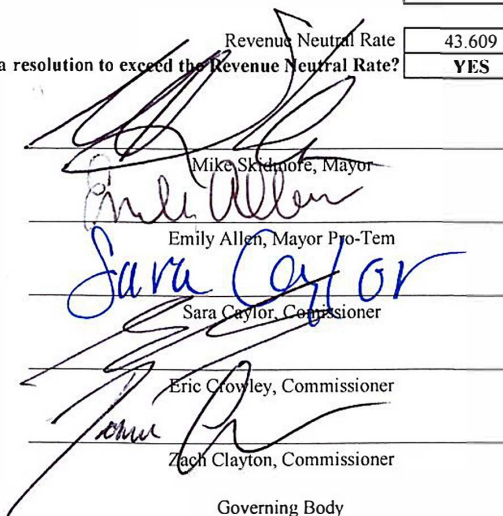 Revenue Neutral Rate 43.609
a resolution to exceed the Revenue Neutral Rate? YES
Mike Skidmore, Mayor
Emily Allen
Emily Allen, Mayor Pro-Tem
Sara Caylor
Sara Caylor, Comissioner
Eric Crowley, Commissioner
Zach Clayton, Commissioner
Governing Body